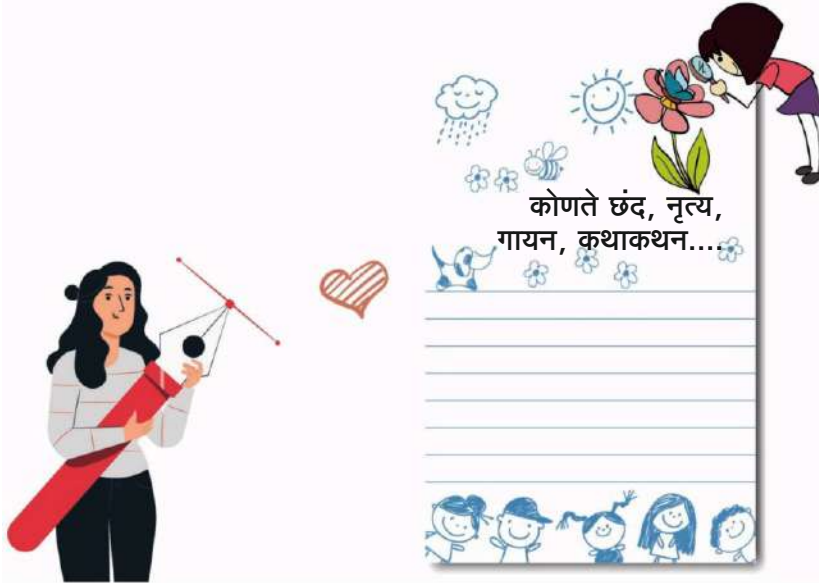 कोणते छंद, नृत्य,
गायन, कथाकथन....